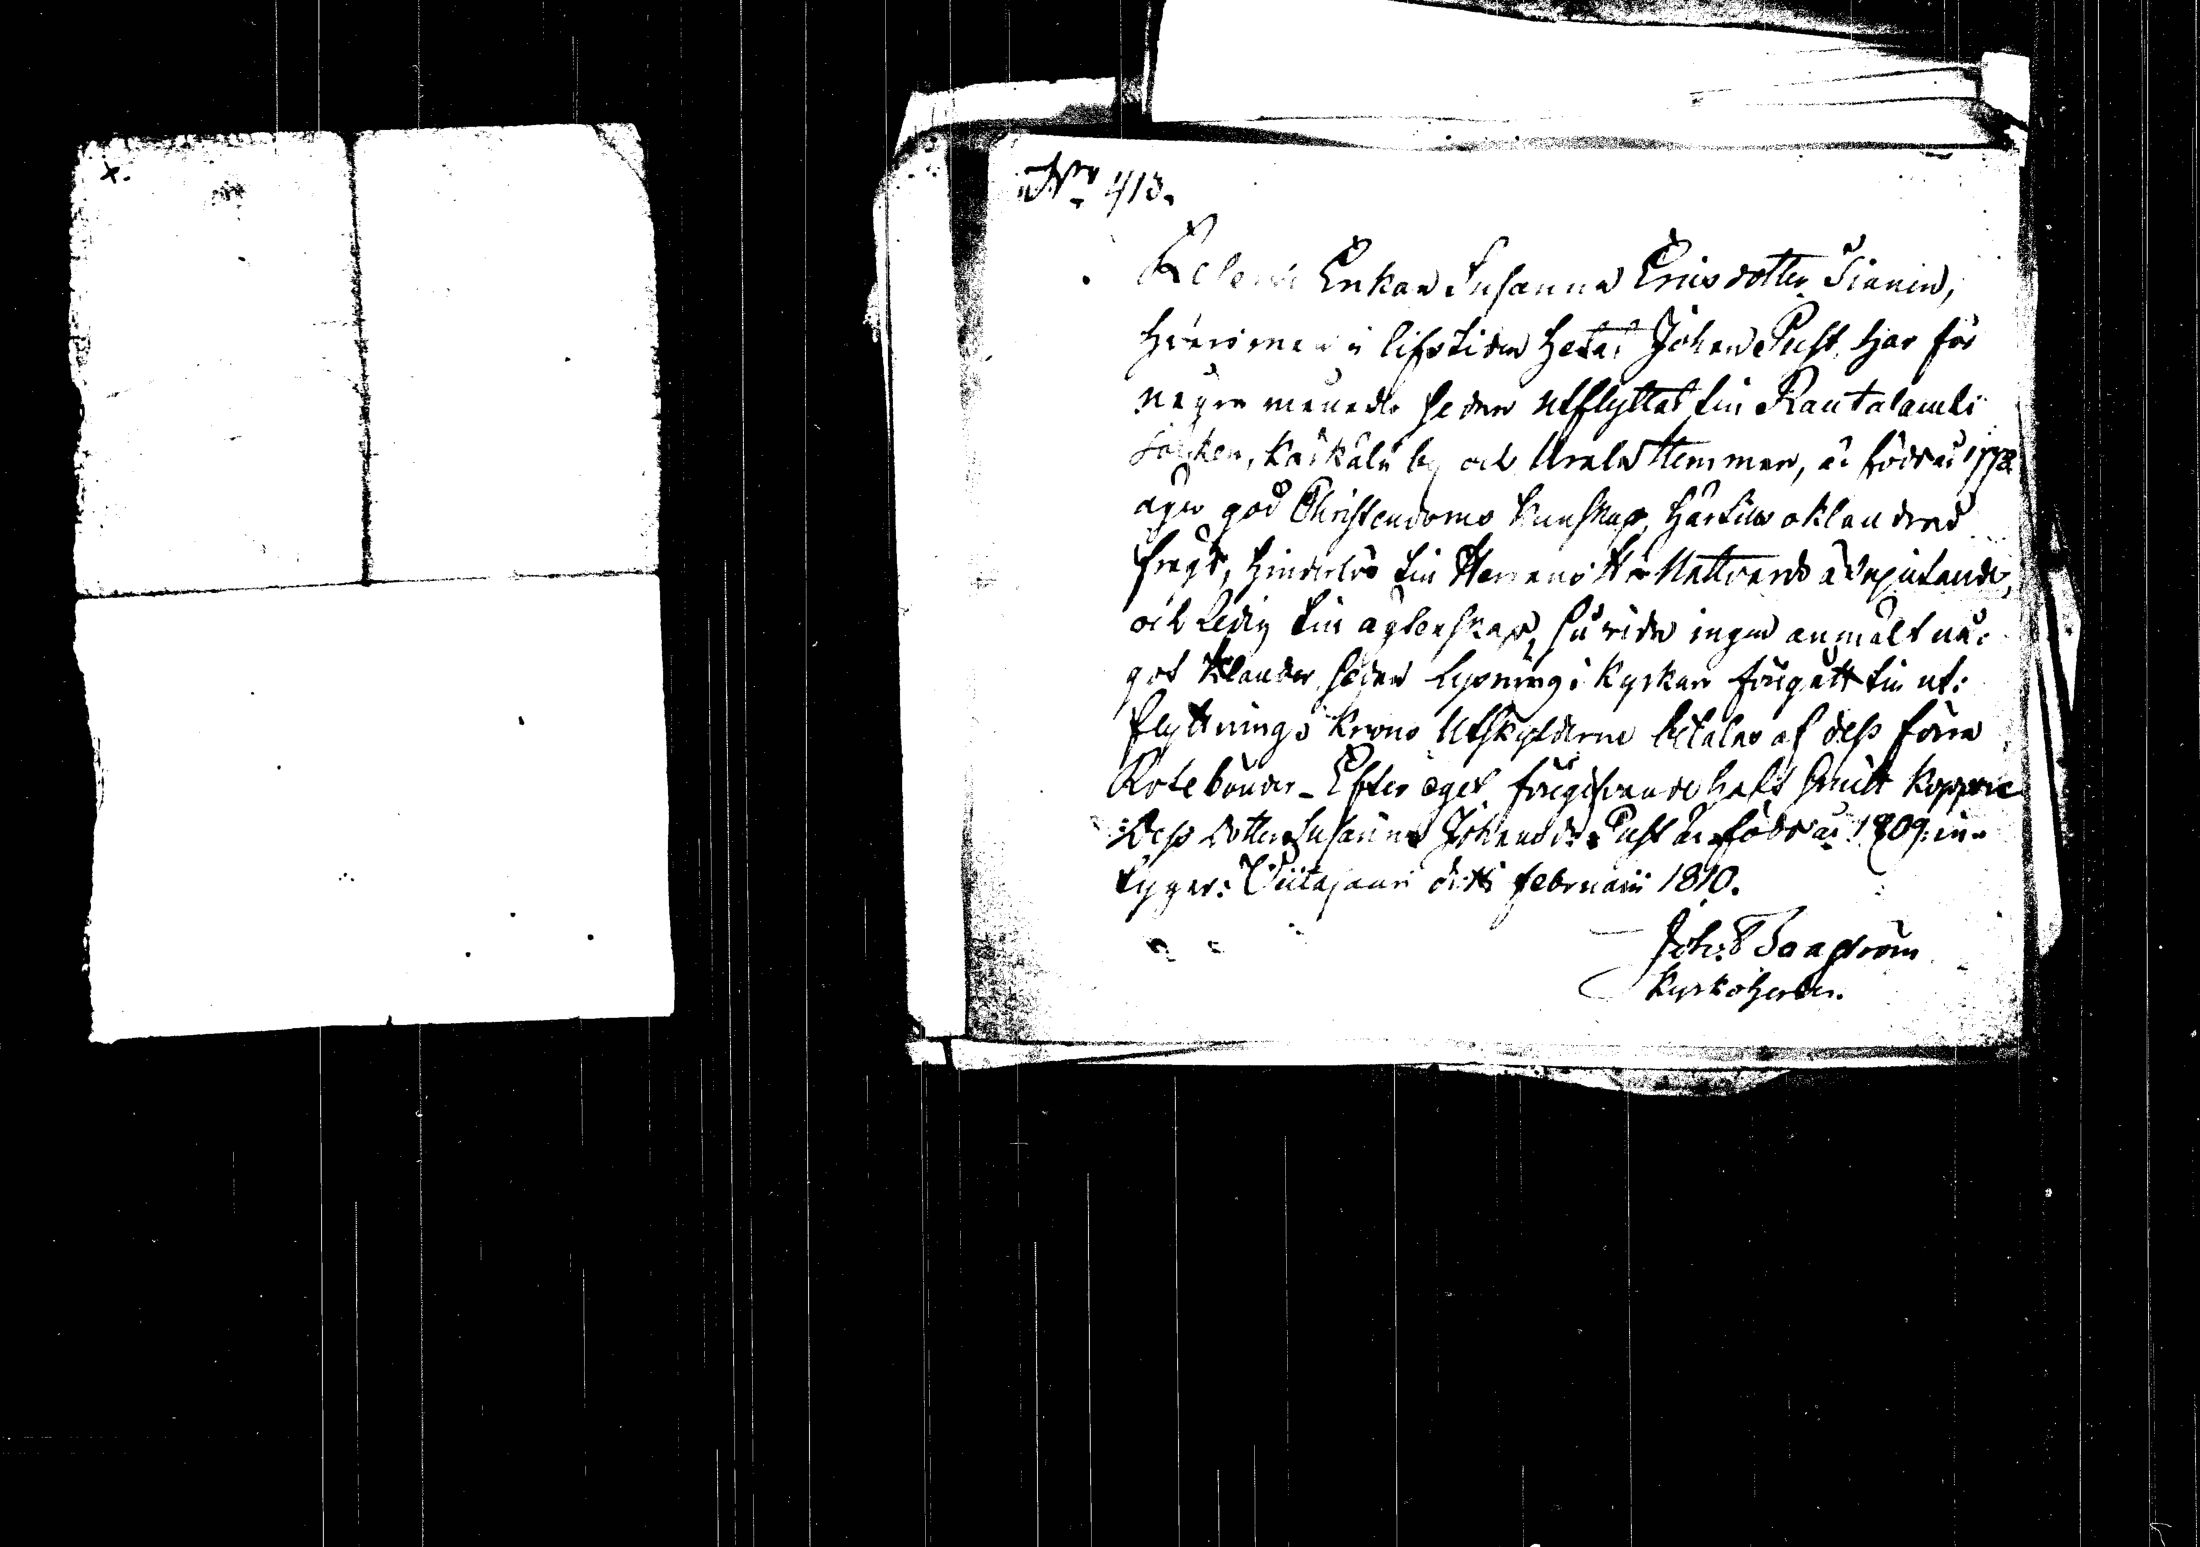 x.
No 413.
Enkan Susanna Ericsdotter Tianin,
hvars man i lifstiden hetat Johan Pust, har för
några månader sedan utflyttat till Rautalambi
Socken, Kärkälä by och Urala Hemman, är född år 1778
äger god Christendoms kunskap, härtills oklandrad
fregd, hinderlös till Herrans H. Nattvards adspirande,
och Ledig till ägtenskap, su vida ingen anmält nå-
got klander sedan Lysning i Kyrkan föregått till ut-
flyttning. Krono Utskylderne betalas af dess förra
Rotebönder - Efter eget föregifvande haft Koppor
Dess dotter Susanna Johansdr Pust är född år 1809. in-
tygar: Viitasaari d. Februarii 1810.
Joh:
Kyrkoherde.